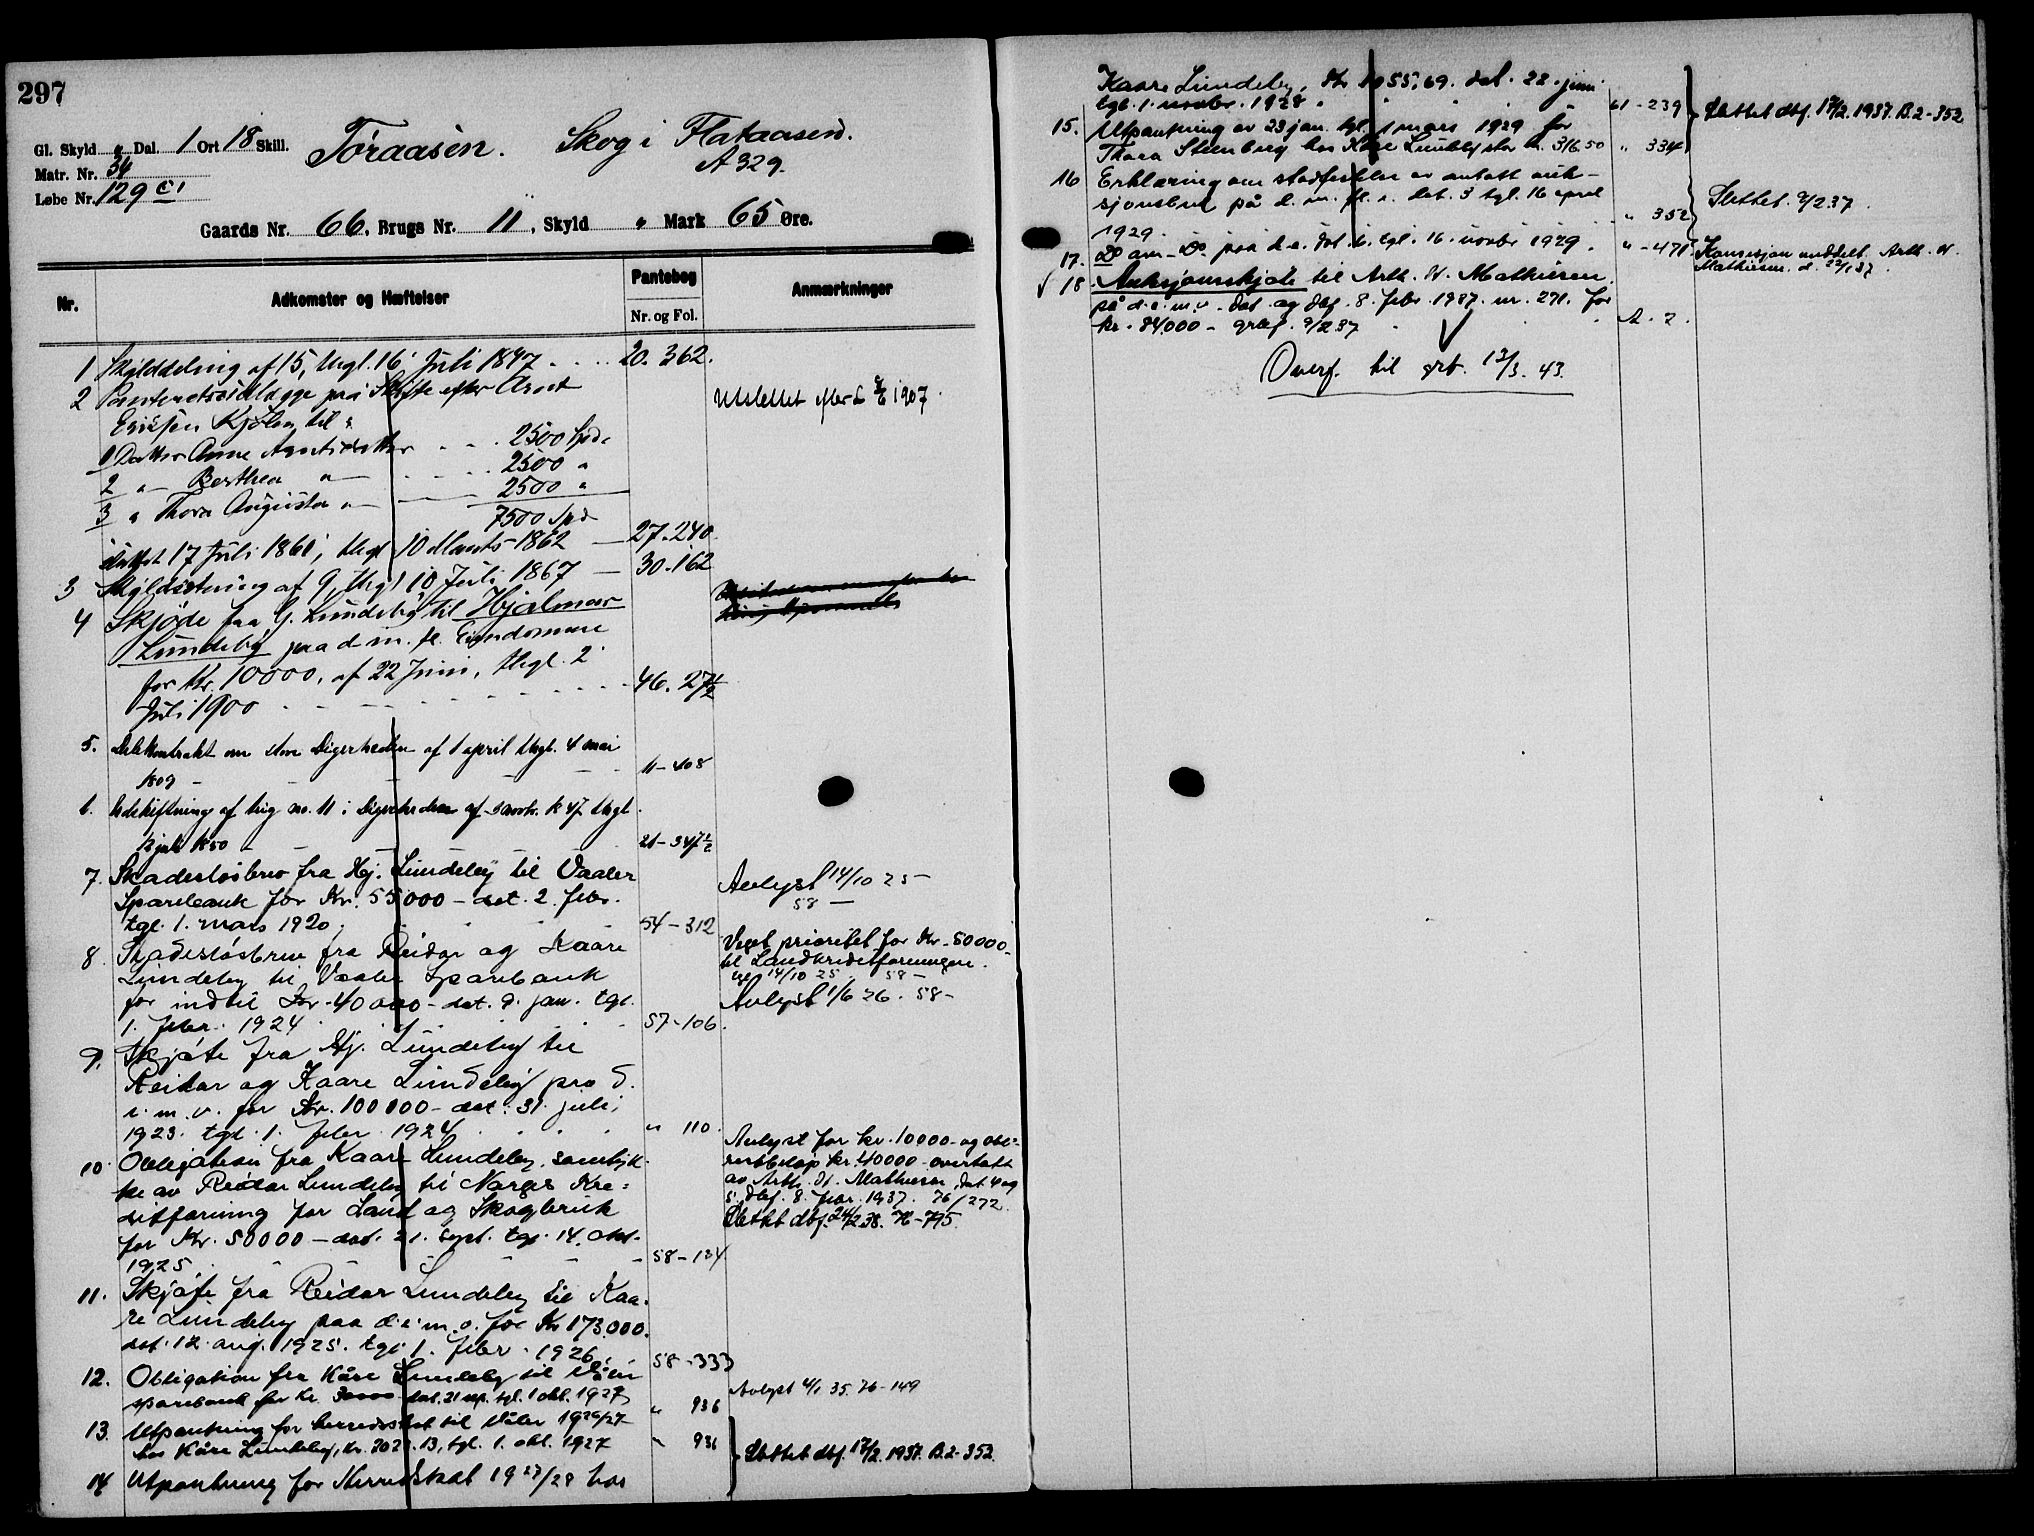 297
Gl. Skyld " Dal. 1 Ort 18 Skill. Toraasen. Skog i Flataasen.
Matr. Nr. 34 A 329.
Løbe Nr. 129 c1
Gaards Nr. 66, Brugs Nr. 11, Skyld " Mark 65 Øre.
Nr. Adkomster og Hæftelser Pantebog Anmærkninger
Nr. og Fol.
1 Skylddeling af 15, thgl. 16 Juli 1847 20. 362.
2 paa Skifte efter
Udslettet efter L 1907.
Kjølen til
1 Datter Anne 2500 Spd.
2 " Berthea " 2500 "
3 " Thora Augusta " 2500 "
7500 Spd
17 Juli 1861, thgl 10 Marts 1862 27. 240
3 af 9, thgl 10 Juli 1867 30. 162
4 Skjøde fra G. Lundeby til Hjalmar
Lundeby paa d. m. fl. Eiendomme
for Kr. 10000, af 22 Juni, thgl. 2
Juli 1900 46. 27½
5. Delekontrakt om store Digerheden af 1 april thgl. 4 mai
1809 11-408
6. Udskiftning af brug no. 11 i Digerheden af novbr. 1847 thgl
12 juli 1850 21-347½
7. Skadesløsbrev fra Hj. Lundeby til Vaaler
Sparebank for Kr. 55000 - dat. 2. febr.
tgl. 1. mars 1920 54-312
Avlyst 14/10 25 -
58 -
8. Skadesløsbrev fra Reidar og Kaare
Lundeby til Vaaler Sparebank
for indtil Kr. 40000 - dat. 9. jan. tgl.
1. febr. 1924 57-106.
Veget prioritet for Kr. 50000
til Landkreditforeningen.
14/10 25 58 -
Avlyst 1/6 26. 58 -
9. Skjøte fra Hj. Lundeby til
Reidar og Kaare Lundeby paa d.
e. m. v. for Kr. 100000 - dat. 31. juli
1923. tgl. 1. febr. 1924 " 110.
10 Obligation fra Kaare Lundeby, samtyk-
ke av Reidar Lundeby til Norges Kre-
ditforening for Land og Skogbruk
for Kr. 50000 - dat. 21. sept. tgl. 14. okt.
1925. 58-134
Avlyst for kr. 10000 - og
kr. 40000 overtatt
av Arth. H. Mathiesen, dat. 4 og
5. dbf. 8. febr. 1937. 76/272.
Slettet dbf. 24/2 38. 76-795.
11. Skjøte fra Reidar Lundeby til Kaa-
re Lundeby paa d. e. m. v. for Kr 173.000.
dat. 12. aug. 1925. tgl. 1. febr. 1926. 58-333
12. Obligation fra Kåre Lundeby til Våler
sparebank for kr. 30000 - dat. 21 sep. tgl. 1 okt. 1927 " 936
Avlyst 4/1 35. 76-149
13. Utpantning for herredsskat til Våler 1926/27
hos Kåre Lundeby, kr. 13, tgl. 1. okt. 1927 " 936
Slettet dbf. 17/2. 1937. B. 2-352.
14 Utpantning for Herredskat 1927/28 hos
Kaare Lundeby, kr. 1055,69. dat. 22. juni
tgl. 1. novbr. 1928 61-239
Slettet dbf. 17/2. 1937. B. 2-352.
15. Utpantning av 23 jan. tgl. 1 mars 1929 for
Thora Steenberg hos Kåre Lundeby stor kr. 316.50 " 334
16 Erklæring om stadfestelse av antatt auk-
sjonsbud på d. m. fl. e. dat. 3 tgl. 16 april
1929. " 352
Slettet 9/2 37.
17. Do om - Do paa d. e. dat. 6. tgl. 16. novbr 1929. " - 471.
Konsesjon meddelt Arth. H.
Mathiesen d. 22/1 37.
√ 18. Auksjonsskjøte til Arth. H. Mathiesen
på d. e. m. v. dat. og dbf. 8. febr. 1937. nr. 271. for
kr. 84000 - 9/2 37 A. 2.
Overf. til grb. 13/3. 43.